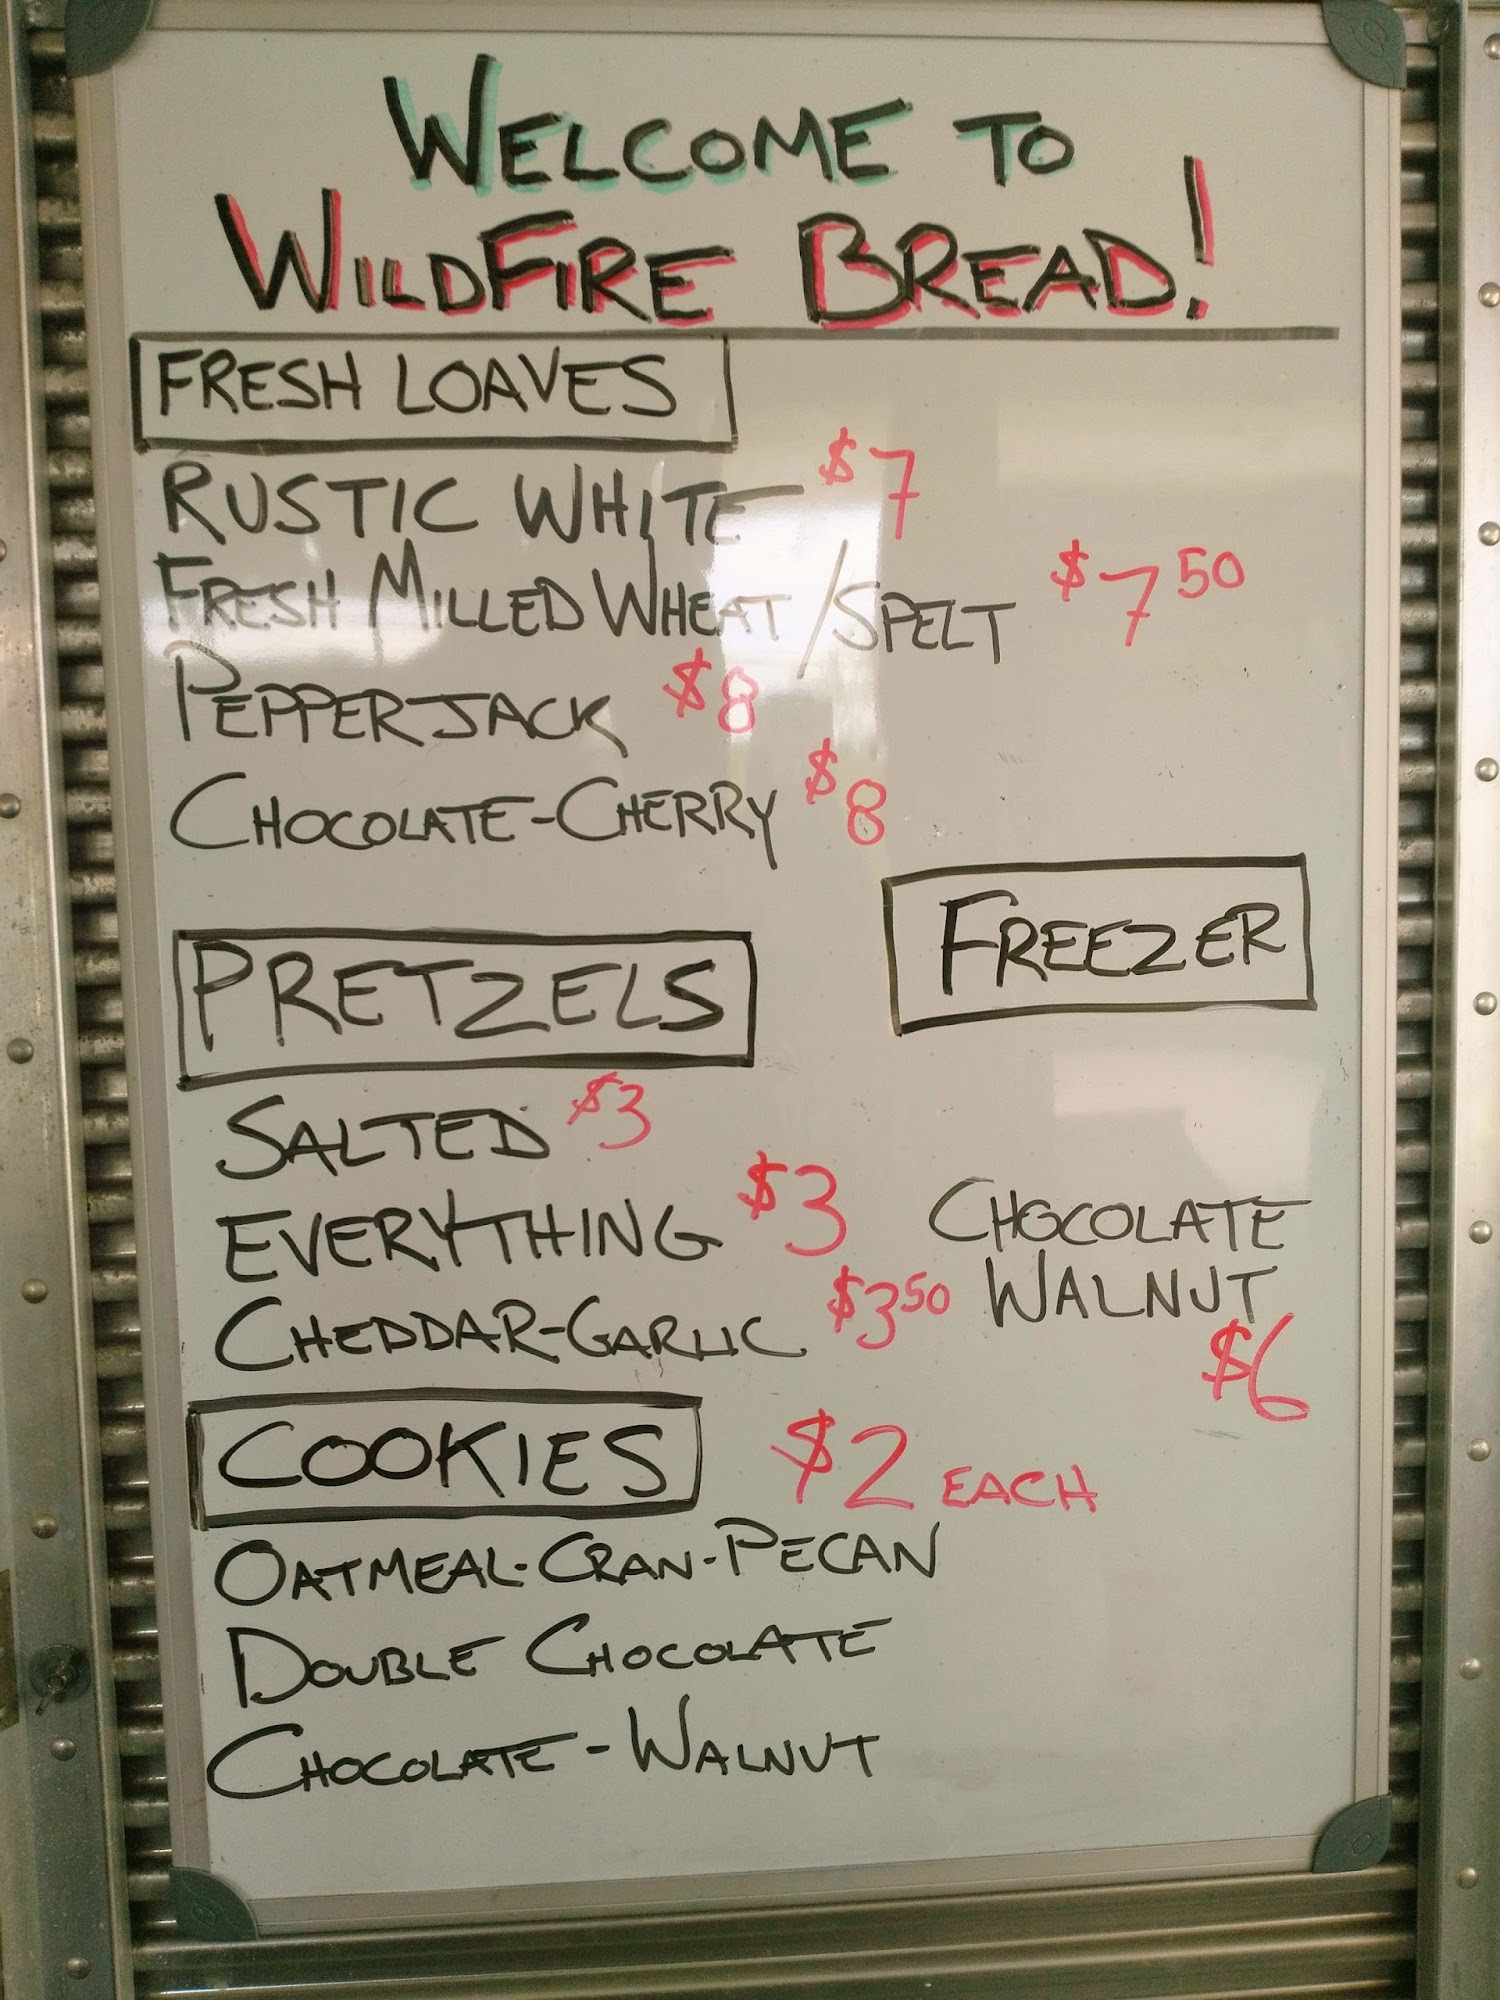 WELCOME TO
WILDFIRE BREAD!
FRESH LOAVES
RUSTIC WHITE $7
FRESH MILLED WHEAT/SPELT $7 50
PEPPERJACK $8
CHOCOLATE-CHERRY $8
PRETZELS
SALTED $3
EVERYTHING $3
CHEDDAR-GARLIC $3 50
FREEZER
CHOCOLATE
WALNUT
$6
COOKIES $2 EACH
OATMEAL-CRAN-PECAN
DOUBLE CHOCOLATE
CHOCOLATE-WALNUT